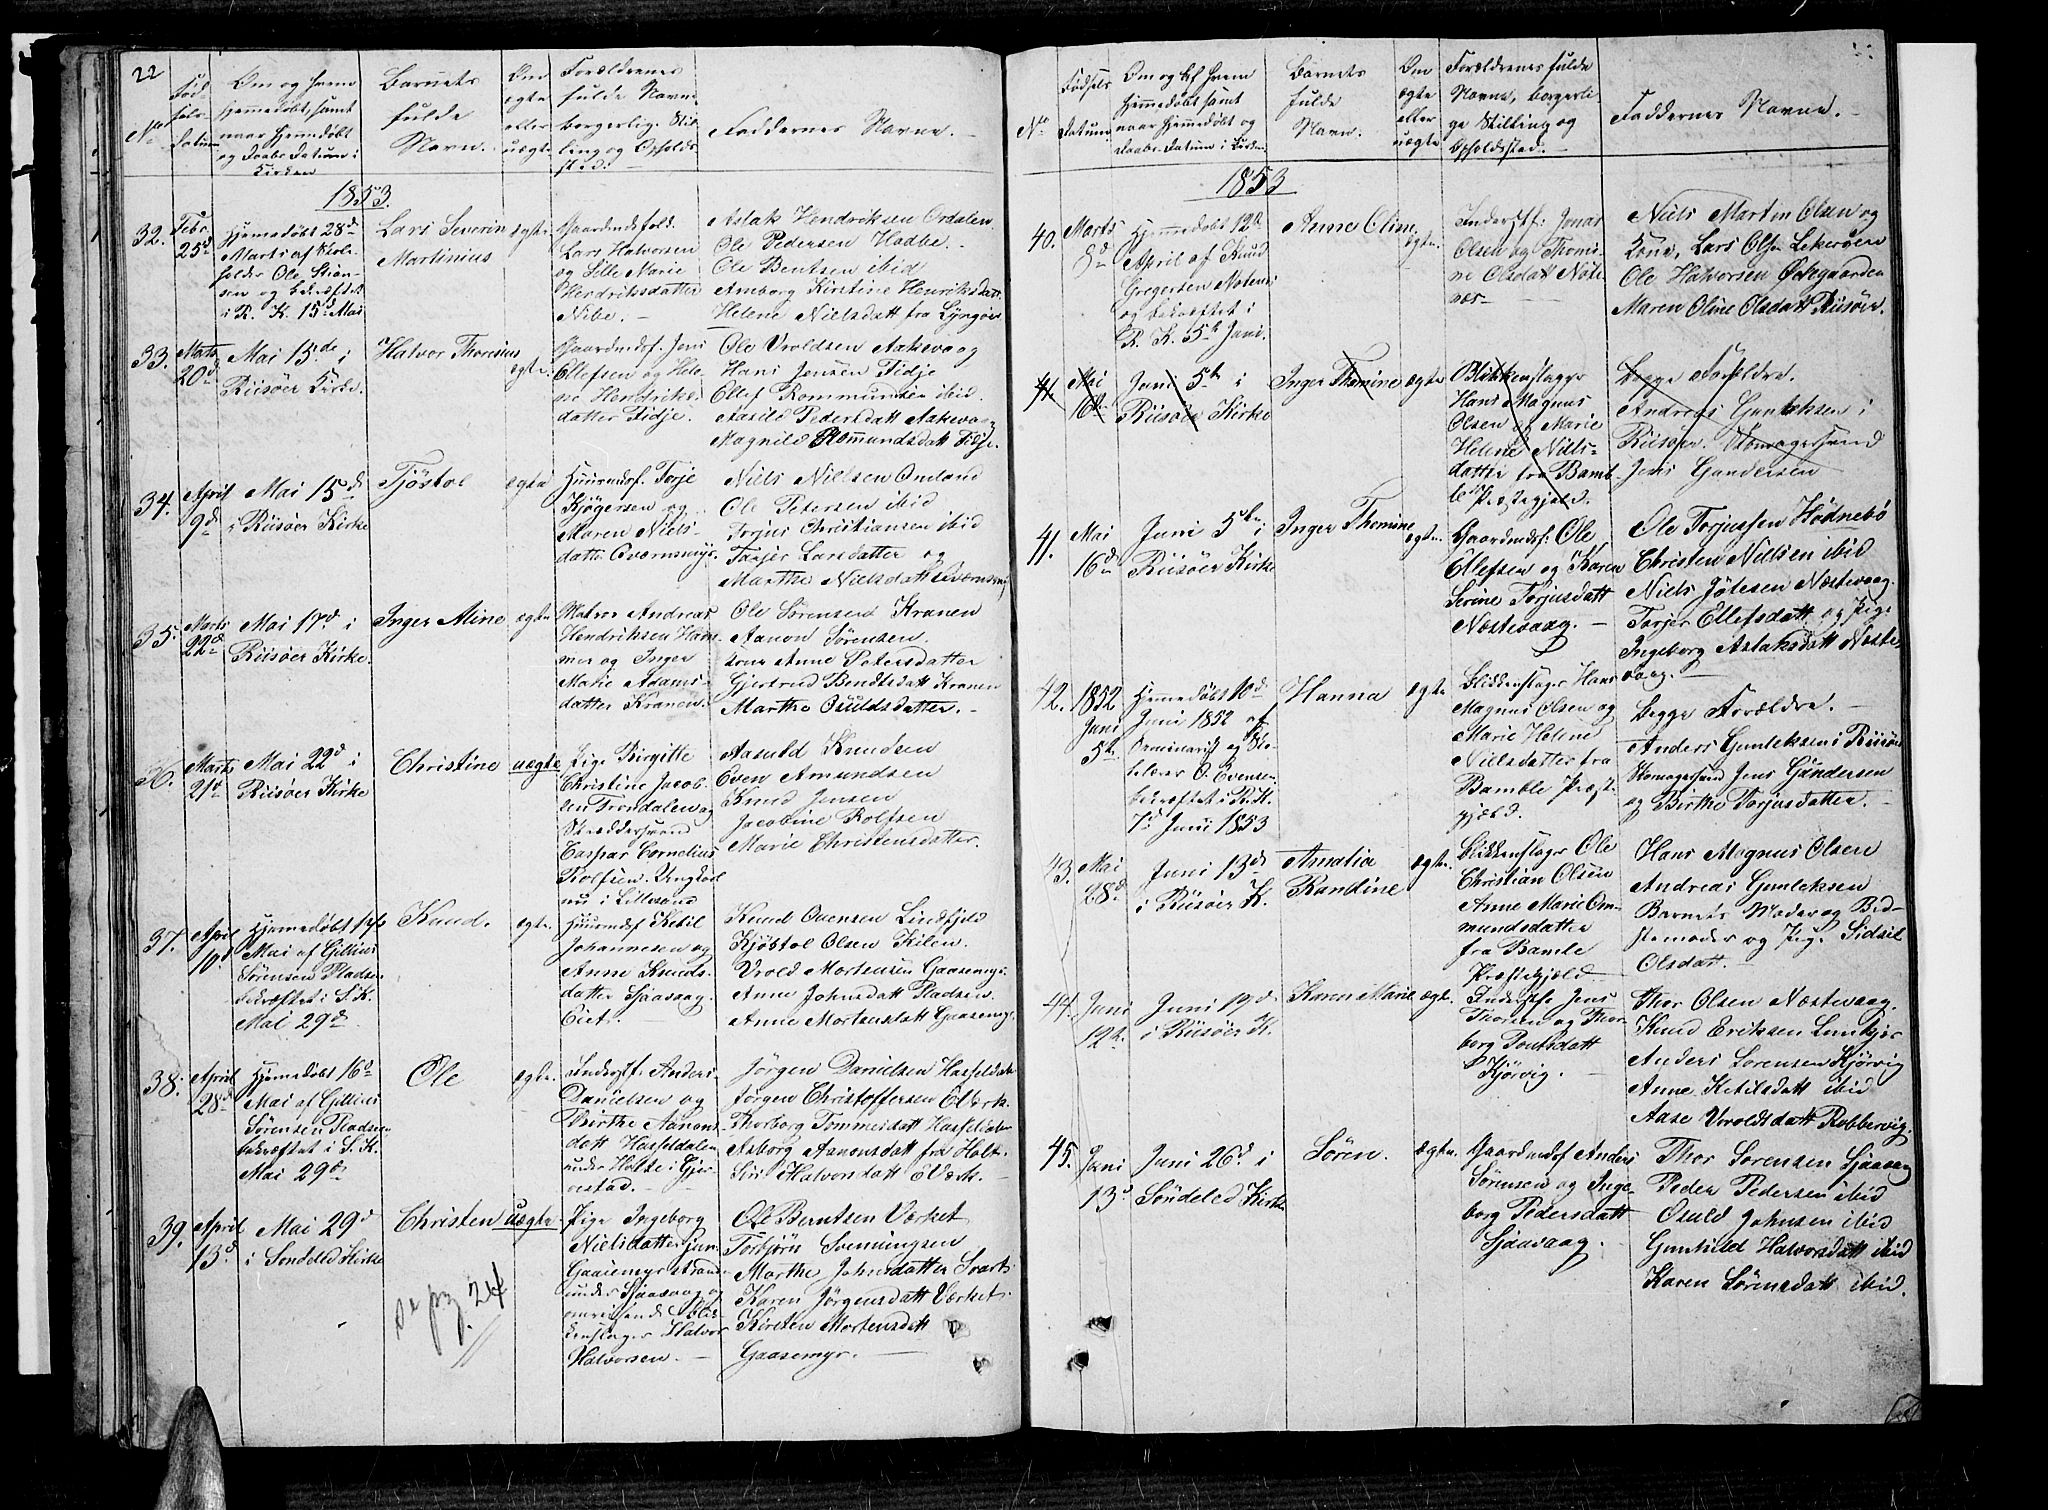 22
No
Fød-
sels-
Datum
Om og hvem
hjemmedøbt, samt
naar hjemmedøbt
og Daabs Datum i
Kirken
Barnets
fulde
Navn.
Om
ægte
eller
uægte
Forældrenes
fulde Navne
borgerlig Stil-
ling og Opholds-
sted.
Faddernes Navne.
1853.
32.
Febr.
25d
Hjemmedøbt 28de
Marts af
Ole
og bekræftet
i R. K. 15d Mai
Lars Severin
Martinius
ægte
Gaardmdsfolk
Lars Halvorsen
og Sille Marie
Hendriksdatter
Nibe.
Aslak Hendriksen Ordalen
Ole Pedersen Hødbø.
Ole Bentsen ibid
Amborg Kirstine Henriksdatt
Helene Nielsdatt fra Lyngøer
33.
Marts
20d
Mai 15de i
Riisøer Kirke.
Halvor Thorsius
ægte.
Gaardmdsf. Jens
Ellefsen og Hele-
ne Hendriks-
datter Fidje.
Ole Vroldsen Aakevaag
Hans Jensen Fidje
Ellef Rommundsen ibid.
Aasild Pedersdatt Aakevaag
Magnild Rommundsdatt Fidje.
34.
April
9d
Mai 15d
i Riisøer Kirke
Tjöstol
ægte
Huusmdsf. Torje
Kjøgersen og
Maren Niels-
datter Qværnsmyr.
Niels Nielsen Omland
Ole Petersen ibid
Torjus Christiansen ibid
Tarjer Larsdatter og
Marthe Nielsdatt Qværnsmyr
35.
Marts
22d
Mai 17d i
Riisøer Kirke.
Inger Aline
ægte
Matros Andreas
Hendriksen Ham-
mer og Inger
Marie Adams-
datter Kranen.
Ole Sørensen Kranen
Aanon Sørensen.
Anne Petersdatter
Gjertrud Bendtsdatt Kranen
Marthe Osuldsdatter.
36.
Marts
21d
Mai 22d i
Riisøer Kirke
Christine
uægte
Pige Birgitte
Christine Jacob-
sen Trondalen og
Skræddersvend
Caspar Cornelius
Rolfsen. Ungkarl
nu i Lillesand
Aasuld Knudsen
Even Amundsen
Knud Jensen
Jacobine Rolfsen
Marie Christensdatter.
37.
April
10d
Hjemmedøbt
Mai af Gjillius
Sørensen Pladsen
bekræftet i S. K.
Mai 29d
Knud.
ægte.
Huusmdsf Ketil
Johannesen og
Anne Knuds-
datter Sjaavaag
Eiet.
Knud Ovensen Lindkjeld
Kjöstol Olsen Kilen.
Vrold Mortensen Gaasemyr.
Anne Johnsdatt Pladsen.
Anne Mortensdatt Gaasemyr.
38.
April
28d
Hjemmedøbt 16d
Mai af Gjillius
Sørensen Pladsen
bekræftet i S. K.
Mai 29d
Ole
ægte.
Inderstf. Anders
Danielsen og
Birthe Aanons-
datt Hasseldalen
under Holte i Gjer-
restad.
Jørgen Danielsen Hasseldalen
Jørgen Christoffersen EVærk.
Thorborg Tommesdatt Hasseldalen
Aasborg Aanonsdatt fra Holt
Siri Halvorsdatt EVærk.
39.
April
13d
Mai 29d
i Sondeled Kirke
Christen
uægte
Pige Ingeborg
Nielsdatter
Gaasemyrstrand
under Sjaavaag og
Blik-
kenslager Halvor
Halvorsen.
Ole Berntsen Værket
Torbjørn Svenungsen
Marthe Johnsdatter Svart
Karen Jørgensdatt Værket.
Kirsten Mortensdatt
Gaasemyr.
se pg. 24
No
Fødsels
Datum
Om og af hvem
hjemmedøbt samt
naar hjemmedøbt og
Daabs-Datum i Kirken
Barnets
fulde
Navn.
Om
ægte
eller
uægte
Forældrenes fulde
Navne, borgerli-
ge Stilling og
Opholdssted.
Faddernes Navne.
1853
40.
Marts
8d
Hjemmedøbt 12te
April af Knud
Gregersen
og bekræftet i
R. K. 5te Juni.
Anne Oline
ægte.
Inderstf: Jonas
Olsen og Thomi-
ne Olsdatt Nøte-
næs
Niels Martin Olsen og
Kone, Lars Olsen Lekerøen
Ole Halvorsen Østgaarden
Maren Oline Olsdatt Riisøer.
41.
Mai
16de
Juni 5te i
Riisøer Kirke
Inger Thomine
ægte
Blikkenslager
Hans Magnus
Olsen og Marie
Helene Niels-
datter fra Bamb-
le Præstegjeld.
Begge Forældre.
Andreas Gunleksen i
Riisøer. Skomagersvend
Jens Gundersen
41.
Mai
16d
Juni 5te i
Riisøer Kirke
Inger Thomine
ægte.
Gaardmdsf: Ole
Ellefsen og Karen
Serine Torjusdatt
Næstevaag.
Ole Torjussen Hødnebø
Christen Nielsen ibid
Niels Jötesen Næstevaag.
Tarjer Ellefsdatt og Pige
Ingeborg Aslaksdatt Næste-
vaag.
42.
1852
Juni
5te
Hjemmedøbt 10d
Juni 1852 af
Seminarist og Sko-
lelærer O. Evensen
bekræftet i R. K.
7d Juni 1853
Hanna
ægte
Blikkenslager Hans
Magnus Olsen og
Marie Helene
Nielsdatter fra
Bamble Præst-
gjæld.
Begge Forældre.
Anders Gunleksen i Riisøer
Skomagersvend Jens Gundersen
og Birthe Torjusdatter.
43.
Mai
28d
Juni 13d
i Riisøer K.
Amalia
Randine
ægte.
Blikkenslager Ole
Christian Olsen
Anne Marie Om-
mundsdatter
fra Bamle
Præstegjeld
Hans Magnus Olsen
Andreas Gunleksen
Barnets Moder og Bed-
stemoder og Pige Sidsel
Olsdatt.
44.
Juni
12te
Juni 19d
i Riisøer K.
Karen Marie
ægte.
Inderstfe Jens
Thorsen og Thor-
borg Poulsdatt
Kjørvig.
Thor Olsen Næstevaag.
Knud Eriksen Lunkjær
Anders Sorensen Kjørvig
Anne Ketilsdatt ibid
Aase Vroldsdatt Robbervig.
45.
Juni
13d
Juni 26d i
Søndeled Kirke
Søren.
ægte.
Gaardmdsf Anders
Sørensen og Inge-
borg Pedersdatt
Sjaavaag.
Thor Sorensen Sjaavaag
Peder Pedersen ibid
Osuld Johnsen ibid
Gunhild Halvorsdatt ibid
Karen Sørensdatt ibid.